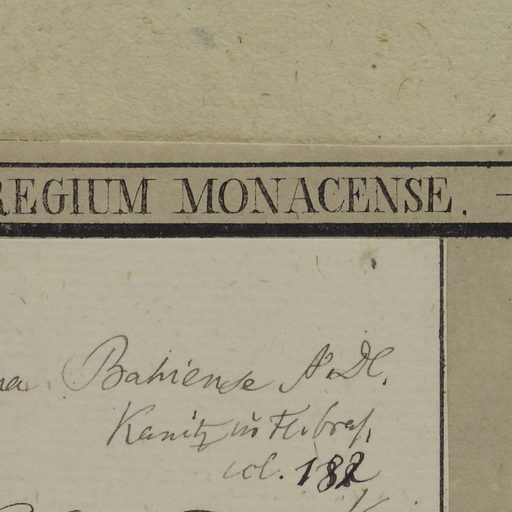 REGIUM MONACENSE.
Bahiense A. DC.
Kanitz in Fl. bras.
col. 182